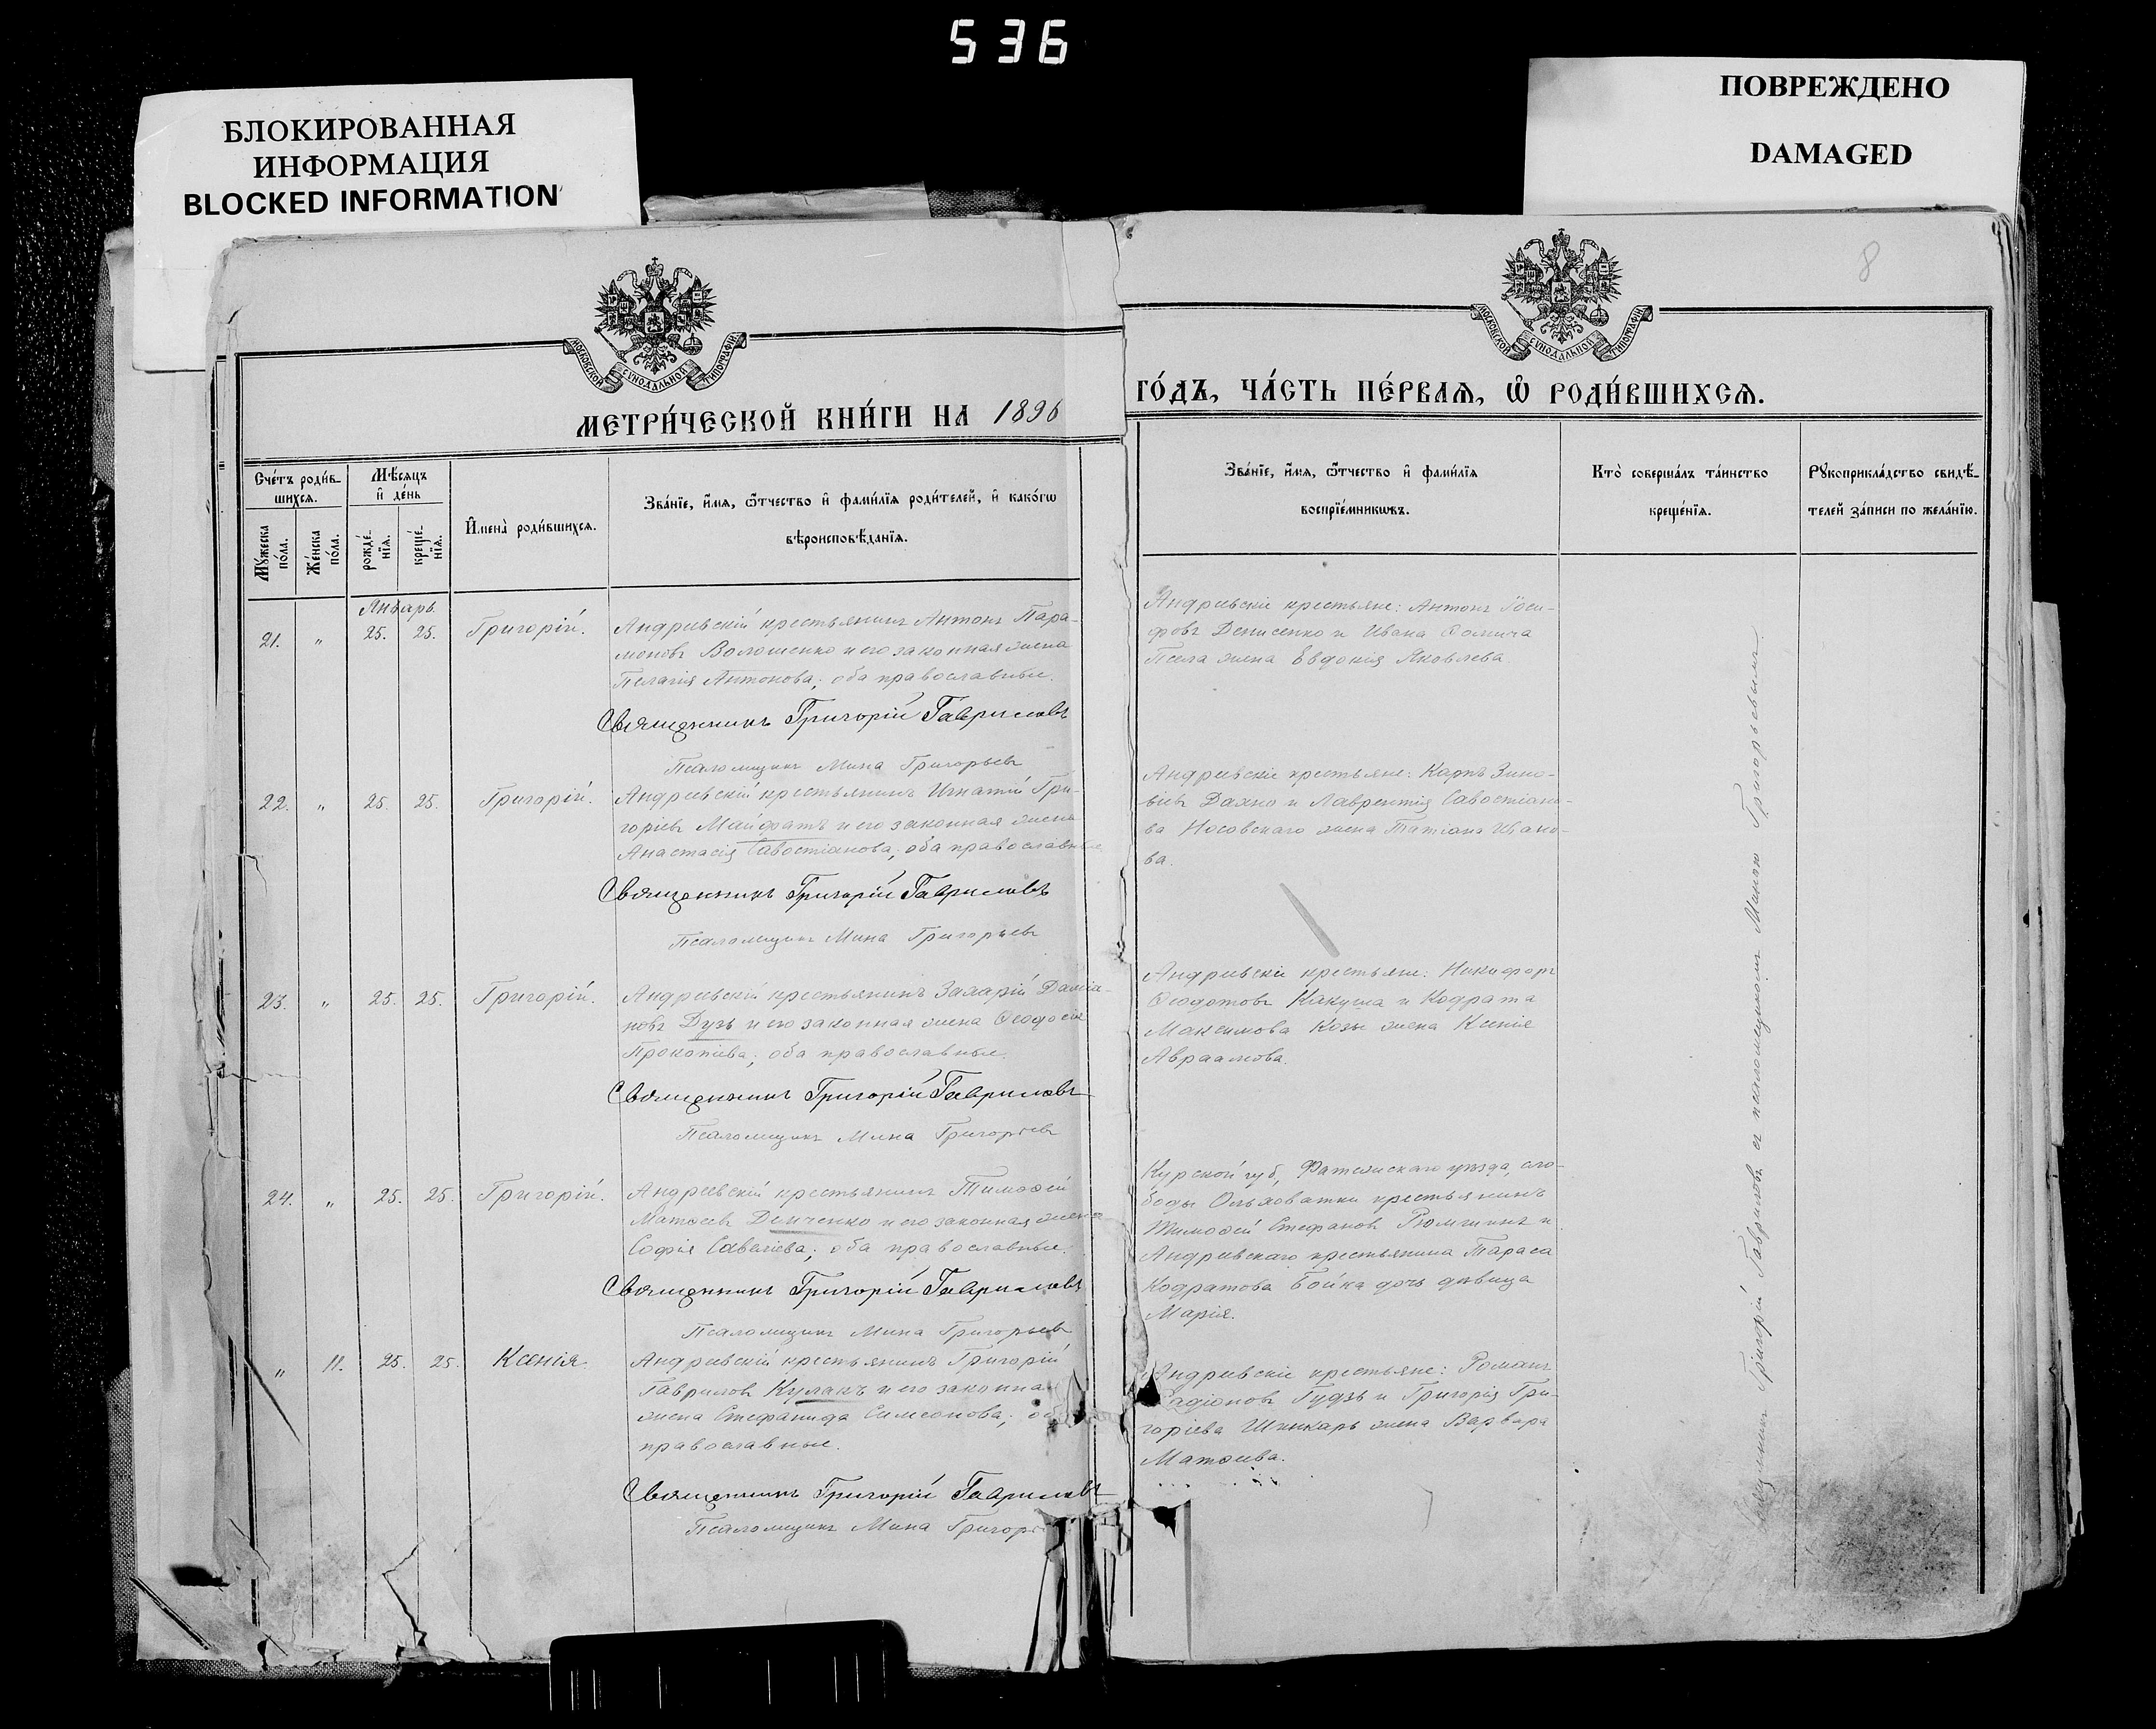 536
БЛОКИРОВАННАЯ
ИНФОРМАЦИЯ
BLOCKED INFORMATION
ПОВРЕЖДЕНО
DAMAGED
8
МОСКОВСКОЙ СУНОДАЛЬНОЙ ТИПОГРАФІИ
МОСКОВСКОЙ СУНОДАЛЬНОЙ ТИПОГРАФІИ
МЕТРИ́ЧЕСКОЙ КНИ́ГИ НА 1896
ГО́ДЪ, ЧА́СТЬ ПЕ́РВАѦ, Ѽ РОДИ́ВШИХСѦ.
Сче́тъ роди́в-
шихсѧ.
Мѣ́сѧцъ
и҆ де́нь
Мꙋ́жеска
по́ла.
Же́нска
по́ла.
рожде́-
нїѧ.
креще́-
нїѧ.
И҆мена̀ роди́вшихсѧ.
Зва́нїе, и҆́мѧ, ѻ҆́тчество и҆ фами́лїѧ роди́телей, и҆ како́гѡ
вѣроисповѣ́данїѧ.
Зва́нїе, и҆́мѧ, ѻ҆́тчество и҆ фами́лїѧ
воспрїе́мникѡвъ.
Кто̀ соверша́лъ та́инство
креще́нїѧ.
Рꙋкоприкла́дство свидѣ́-
телей за́писи по жела́нїю.
Январь
21. " 25. 25. Григорій.
Андреевскій крестьянинъ Антонъ Пара-
моновъ Волошенко и его законная жена
Пелагія Антонова; оба православные.
Священникъ Григорій Гавриловъ
Псаломщикъ Мина Григорьевъ
Андреевскіе крестьяне: Антонъ Іоси-
фовъ Денисенко и Ивана Ѳомича
Псела жена Евдокія Яковлева
22. " 25. 25. Григорій.
Андреевскій крестьянинъ Игнатій Гри-
горіевъ Майфатъ и его законная жена
Анастасія Савостіанова; оба православные
Священникъ Григорій Гавриловъ
Псаломщикъ Мина Григорьевъ
Андреевскіе крестьяне: Карпъ Зино-
віевъ Дахно и Лаврентія Савостіано-
ва Носовскаго жена Татіана Ивано-
ва.
23. " 25. 25. Григорій.
Андреевскій крестьянинъ Захарій Даміа-
новъ Дузь и его законная жена Ѳеодосія
Прокопіева; оба православные.
Священникъ Григорій Гавриловъ
Псаломщикъ Мина Григорьевъ
Андреевскіе крестьяне: Никифоръ
Ѳеодотовъ Какуша и Кодрата
Максимова Козы жена Ксенія
Авраамова.
24. " 25. 25. Григорій.
Андреевскій крестьянинъ Тимоѳей
Матѳеевъ Демченко и его законная жена
Софія Савеліева; оба православные.
Священникъ Григорій Гавриловъ
Псаломщикъ Мина Григорьевъ
Курской губ, Фатежскаго уѣзда, сло-
боды Ольховатки крестьянинъ
Тимоѳей Стефановъ Рюмшинъ и
Андреевскаго крестьянина Тараса
Кодратова Бойка дочь дѣвица
Марія.
" 11. 25. 25. Ксенія.
Андреевскій крестьянинъ Григорій
Гавриловъ Кулакъ и его законная
жена Стефанида Симеонова; об
православные.
Священникъ Григорій Гавриловъ
Псаломщикъ Мина Григорь
Андреевскіе крестьяне: Романъ
Радіоновъ Гудзь и Григорія Гри-
горіева Шинкарь жена Варвара
Матѳеева.
Священникъ Григорій Гавриловъ съ псаломщикомъ Миною Григорьевымъ.